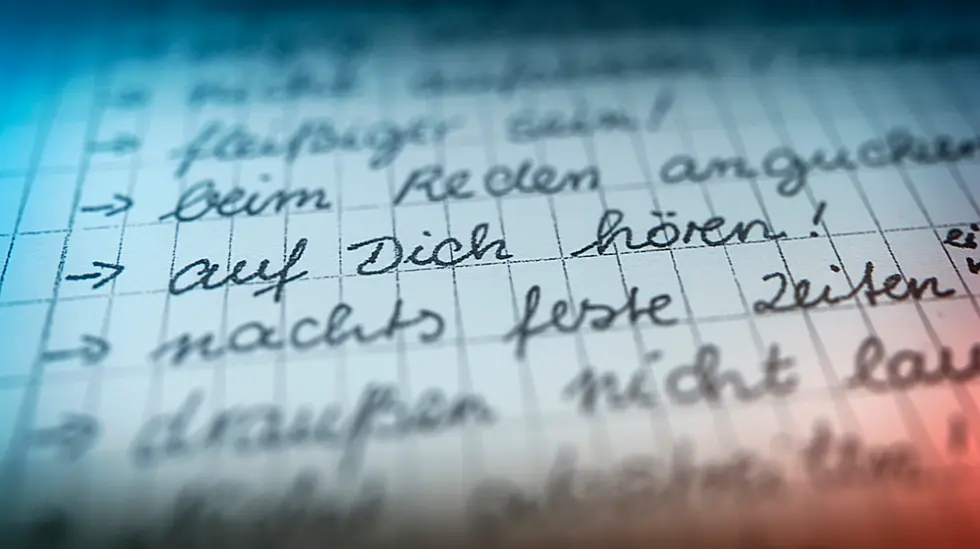 → nicht
→ fleißiger sein!
→ beim Reden angucken
→ auf Dich hören!
→ nachts feste Zeiten
→ draußen nicht lau